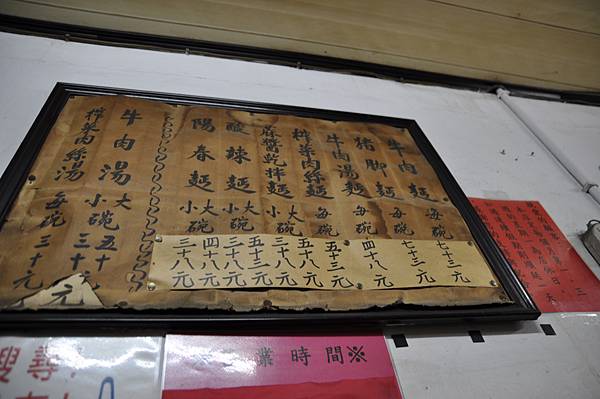 牛肉麵 每碗 七十三元
豬脚麵 每碗 七十三元
牛肉湯麵 每碗 四十八元
榨菜肉絲麵 每碗 五十三元
麻醬乾拌麵 大碗 五十八元
小碗 三十八元
酸辣麵 大碗 五十三元
小碗 三十八元
陽春麵 大碗 四十八元
小碗 三十八元
牛肉湯 大碗 五十元
小碗 三十元
榨菜肉絲湯 每碗 三十元
業時間※
搜尋